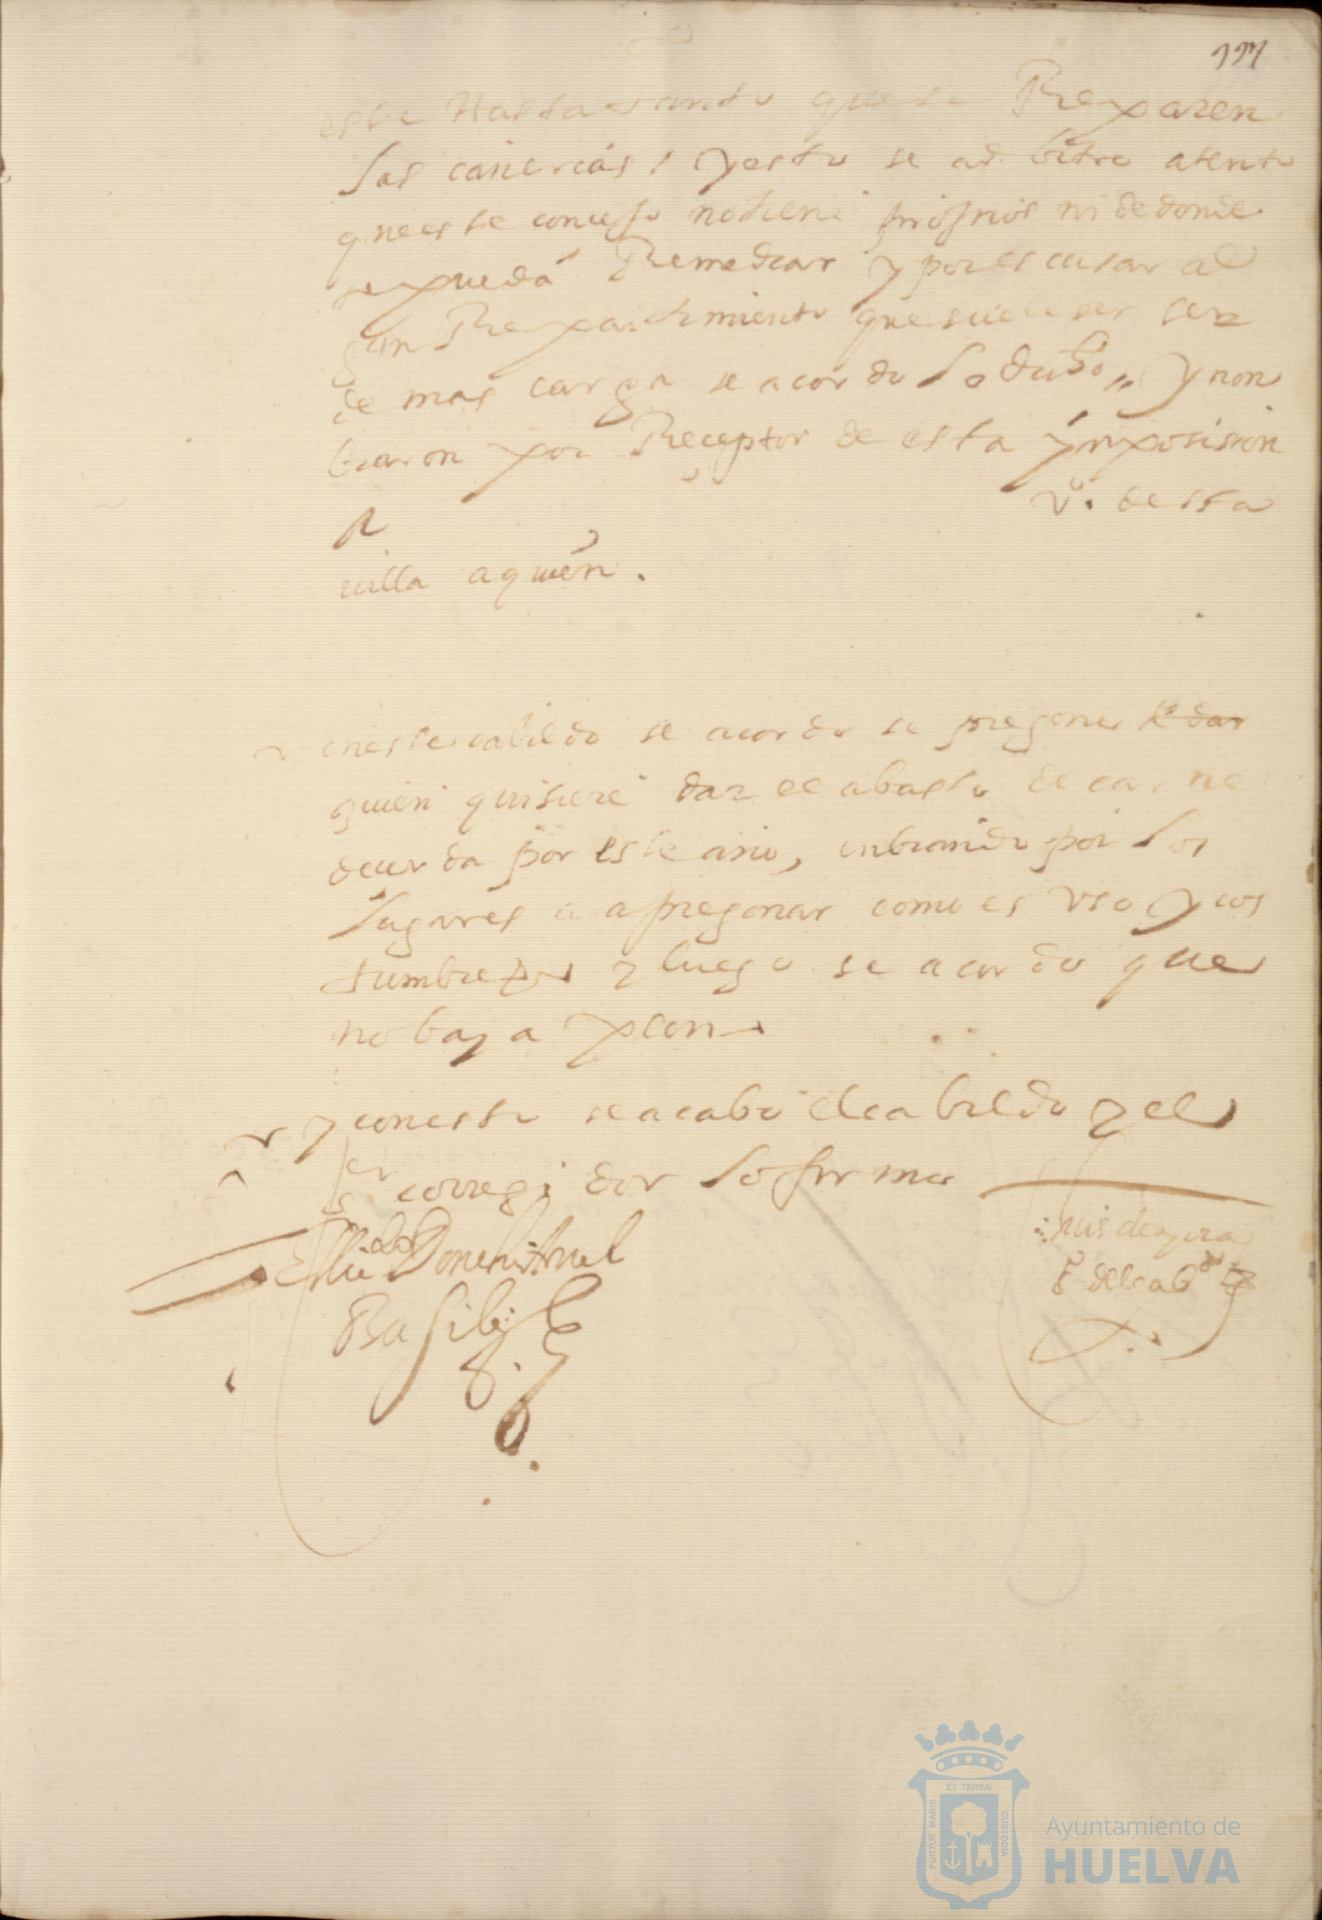 117
este Hasta tanto que se Reparen
las cañerias, y esto se adbitro atento
que este concejo no tiene propios ni de donde
se pueda Remediar y por escusar al
gun Repartimiento que suele ser
de mas carga se acordo lo dicho,, y non
braron por Receptor de esta ynposision
vº. desta
villa a quien.
en este cabildo se acordo se pregone
quien quisiere dar el abasto de carne
de cerda por este año, enbiando por los
lugares a apregonar como es vso y cos
tumbre y luego se acordo que
no baya
y con esto se acabo el cabildo y el
sr corregidor lo firmo
El licdo
luis de
del cabdo
ET TERRÆ
PORTUS MARIS
CUSTODIA
Ayuntamiento de
HUELVA